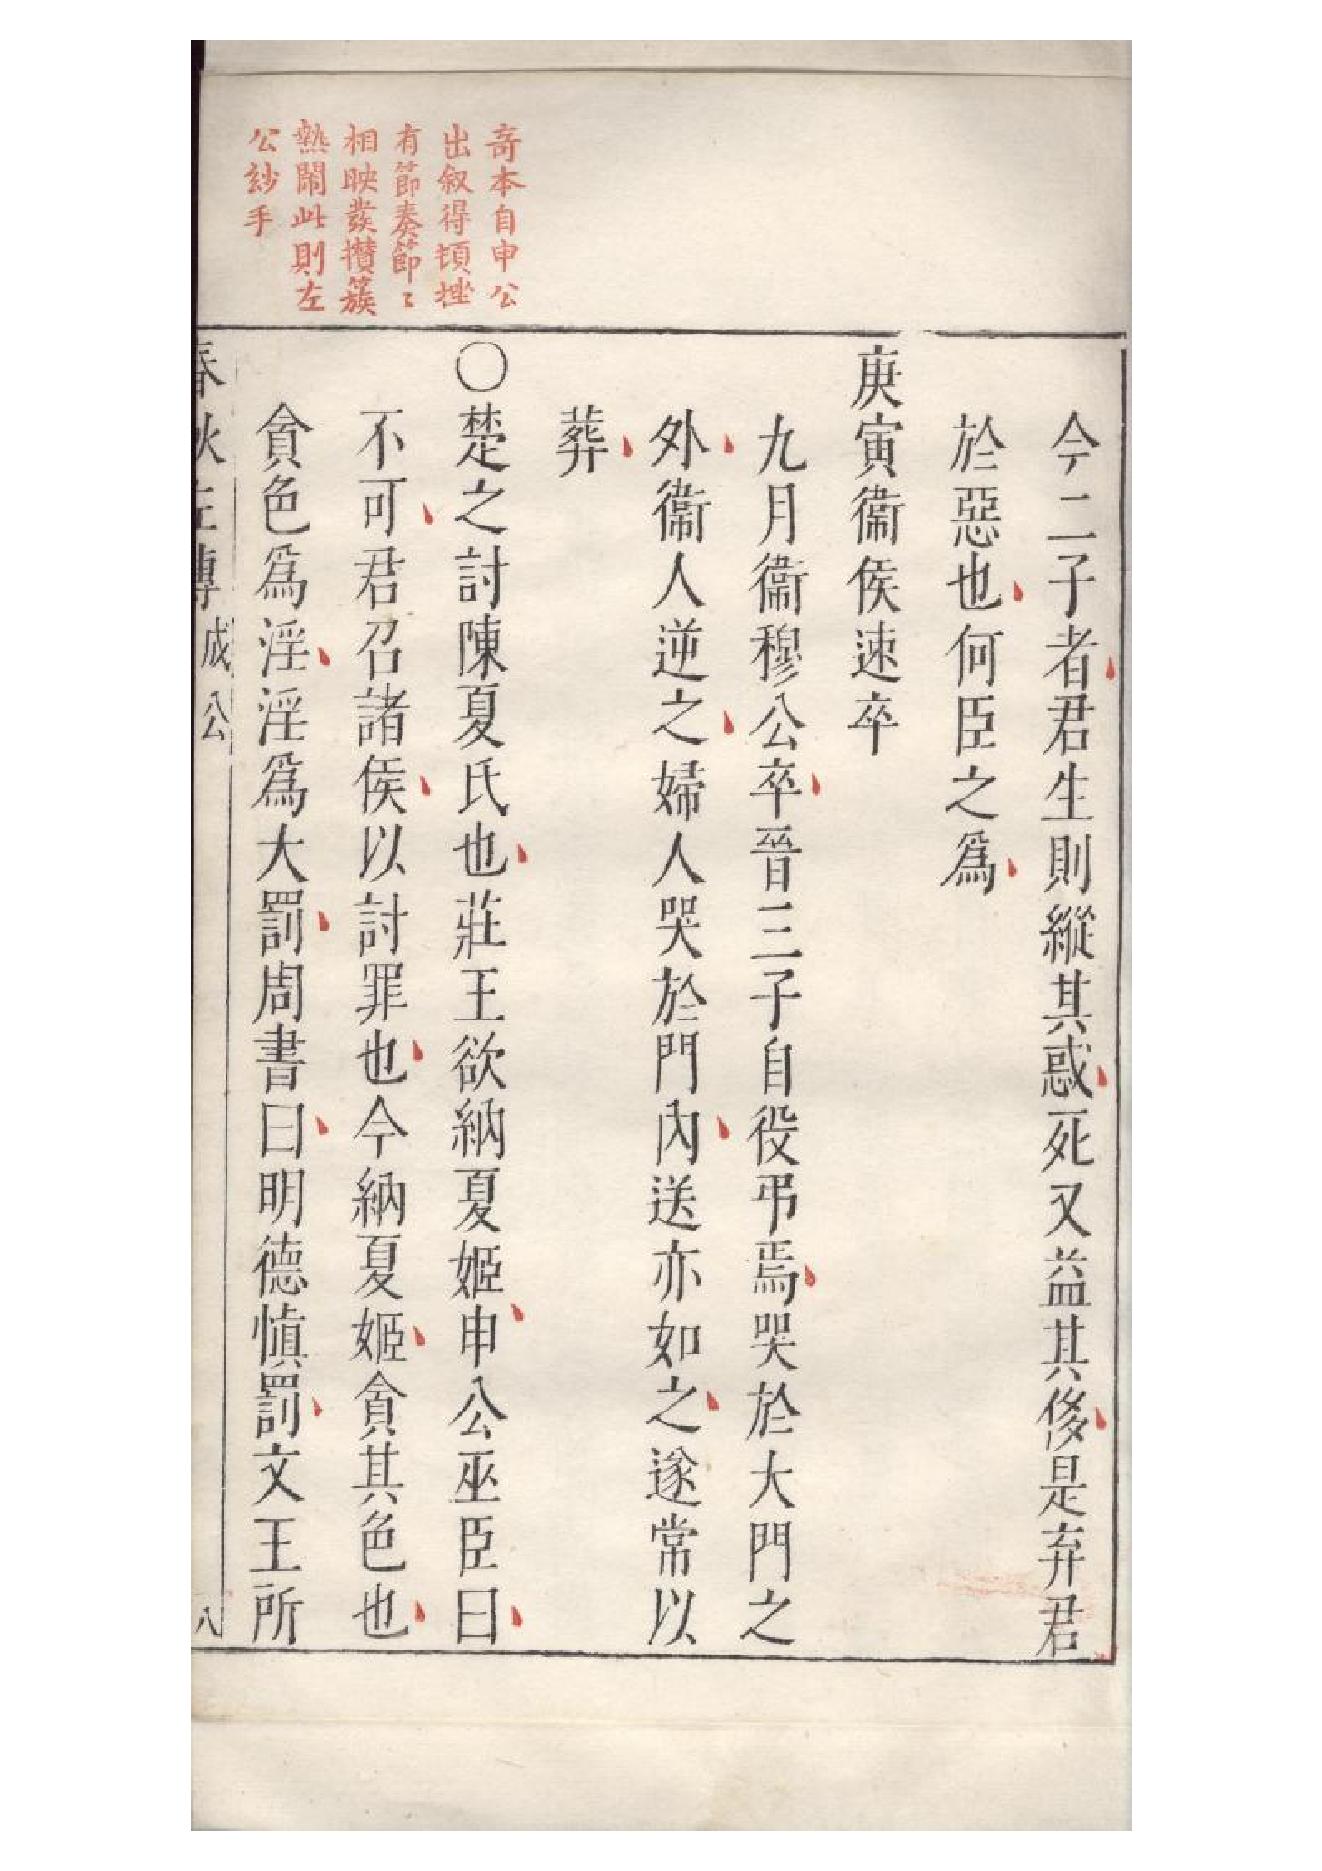 奇本自申公
出叙得頓挫
有節奏節〻
相映發攅簇
熱鬧此則左
公紗手
今二子者君生則縱其惑死又益其侈是弃君
於惡也何臣之爲
庚寅衞侯速卒
九月衞穆公卒晉三子自役弔焉哭於大門之
外衞人逆之婦人哭於門內送亦如之遂常以
葬
〇楚之討陳夏氏也莊王欲納夏姬申公巫臣曰
不可君召諸侯以討罪也今納夏姬貪其色也
貪色爲淫淫爲大罰周書曰明德愼罰文王所
春秋左傳 成公 八